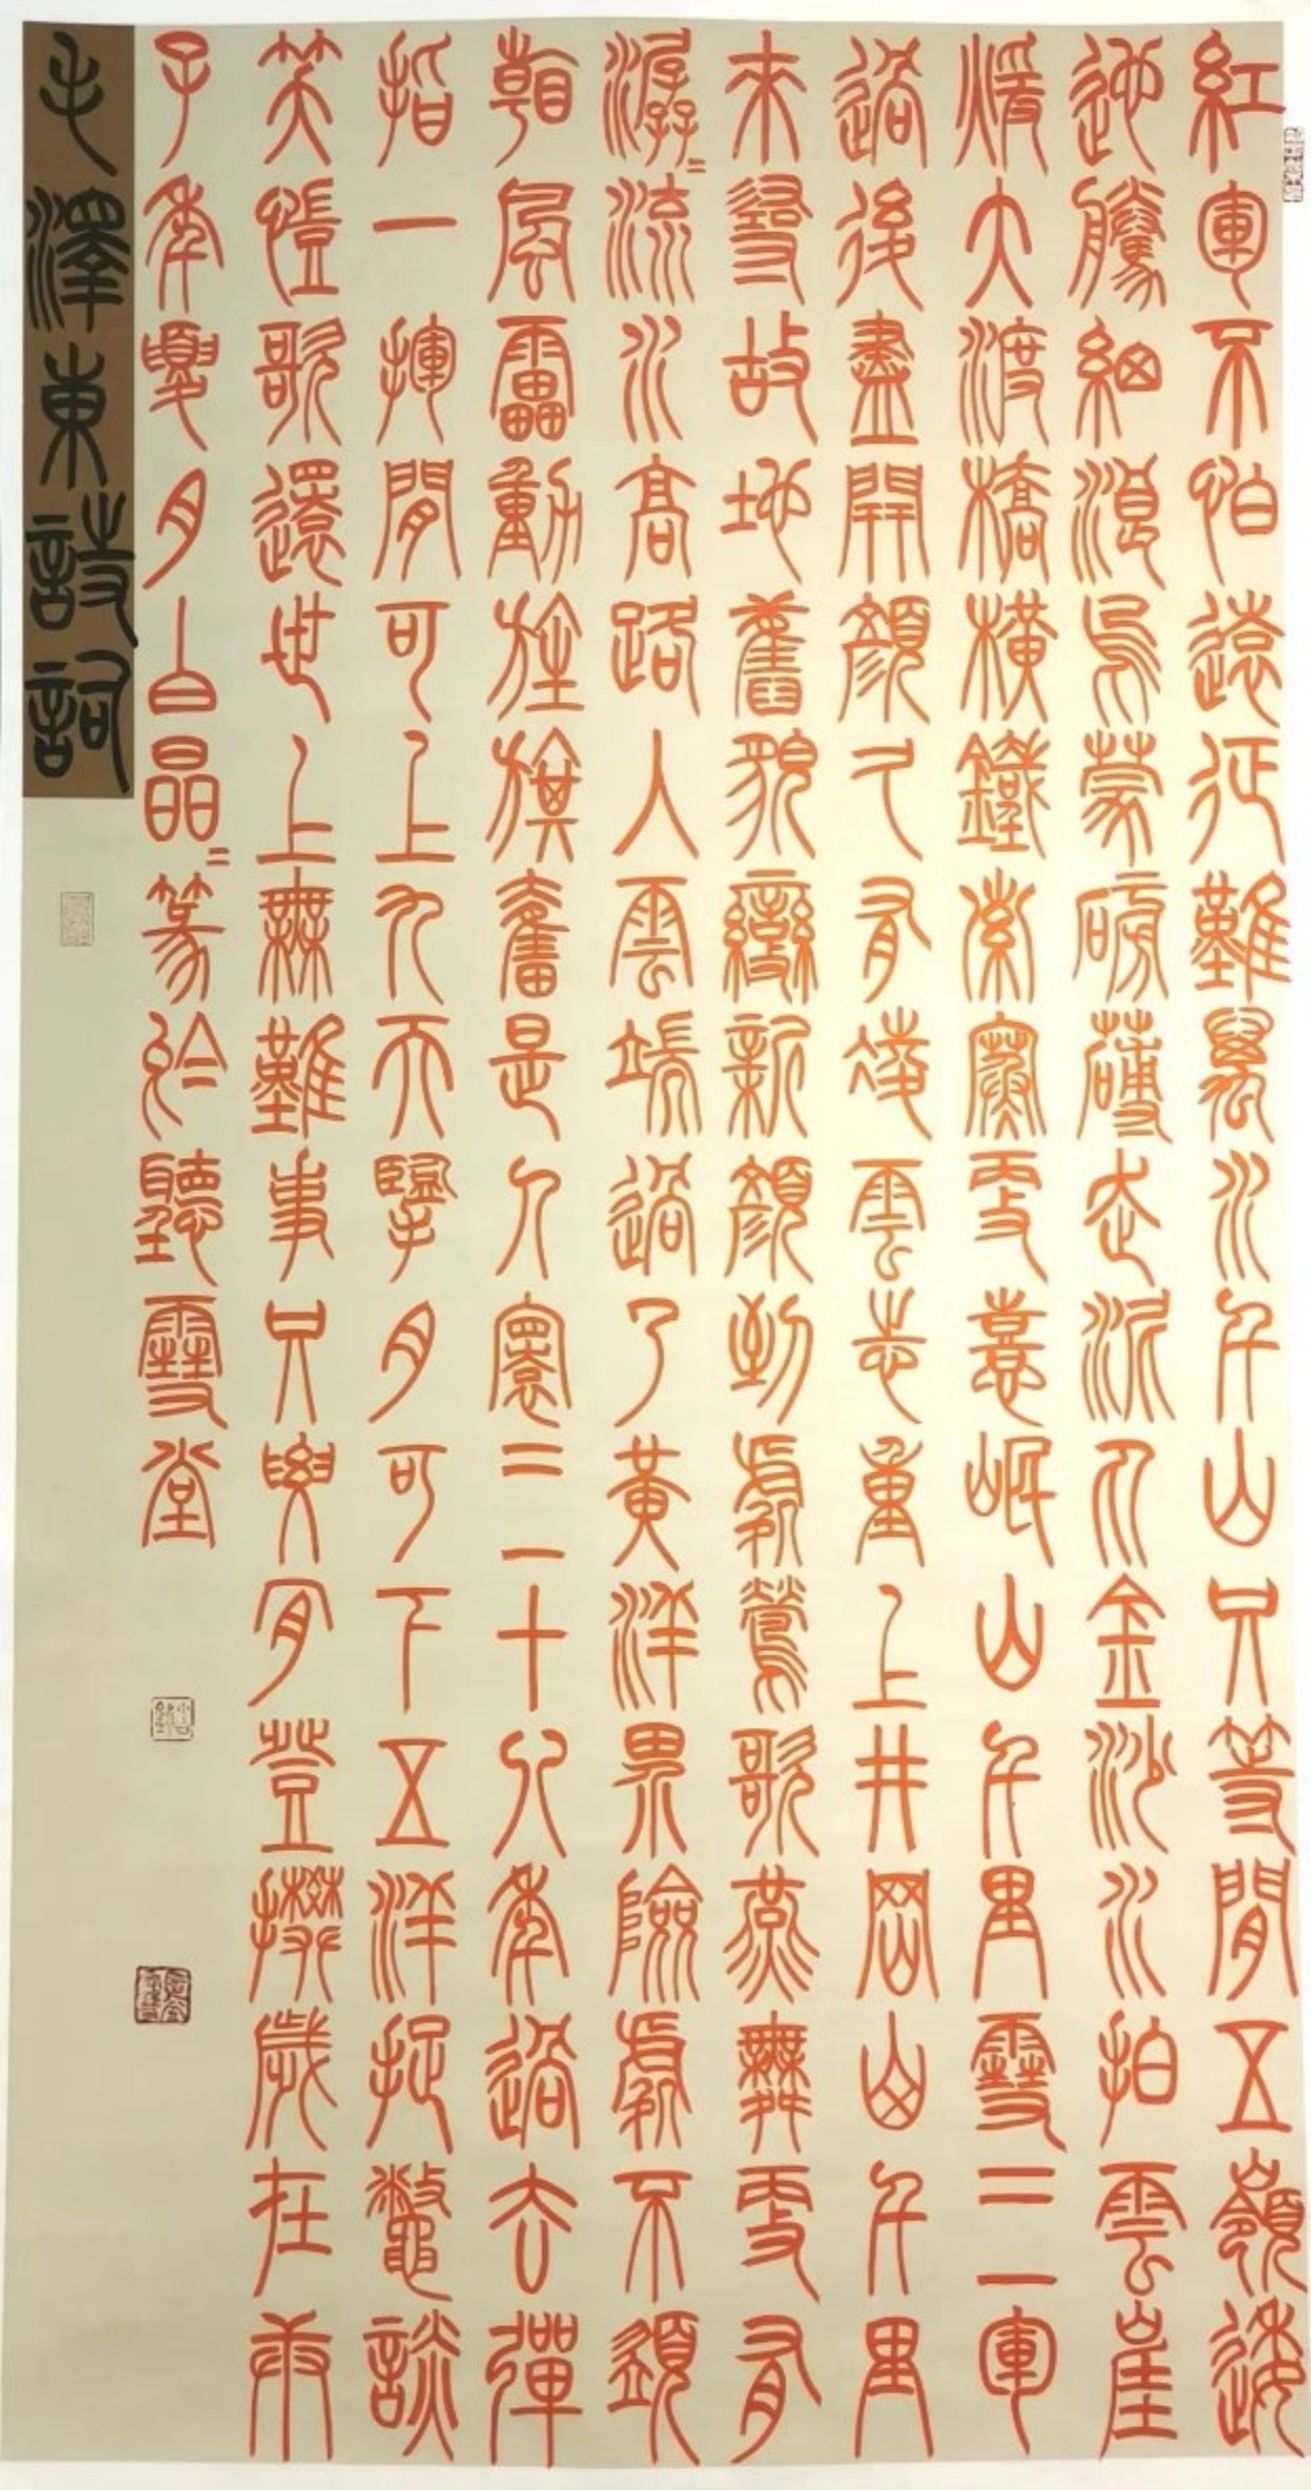 紅軍不怕遠征難萬水千山只等閒五嶺逶
迤騰細浪烏蒙磅礴走泥丸金沙水拍雲崖
煖大渡橋橫鐵索寒更喜岷山千里雪三軍
過後盡開顏久有凌雲志重上井岡山千里
來尋故地舊貌變新顏到處鶯歌燕舞更有
潺潺流水高路入雲端過了黃洋界險處不須
看風雷動旌旗奮是人寰三十八年過去彈
指一揮間可上九天攬月可下五洋捉鱉談
笑凱歌還世上無難事只要肯登攀歲在丙
子年夏月白晶晶篆於聽雪堂
毛澤東詩詞